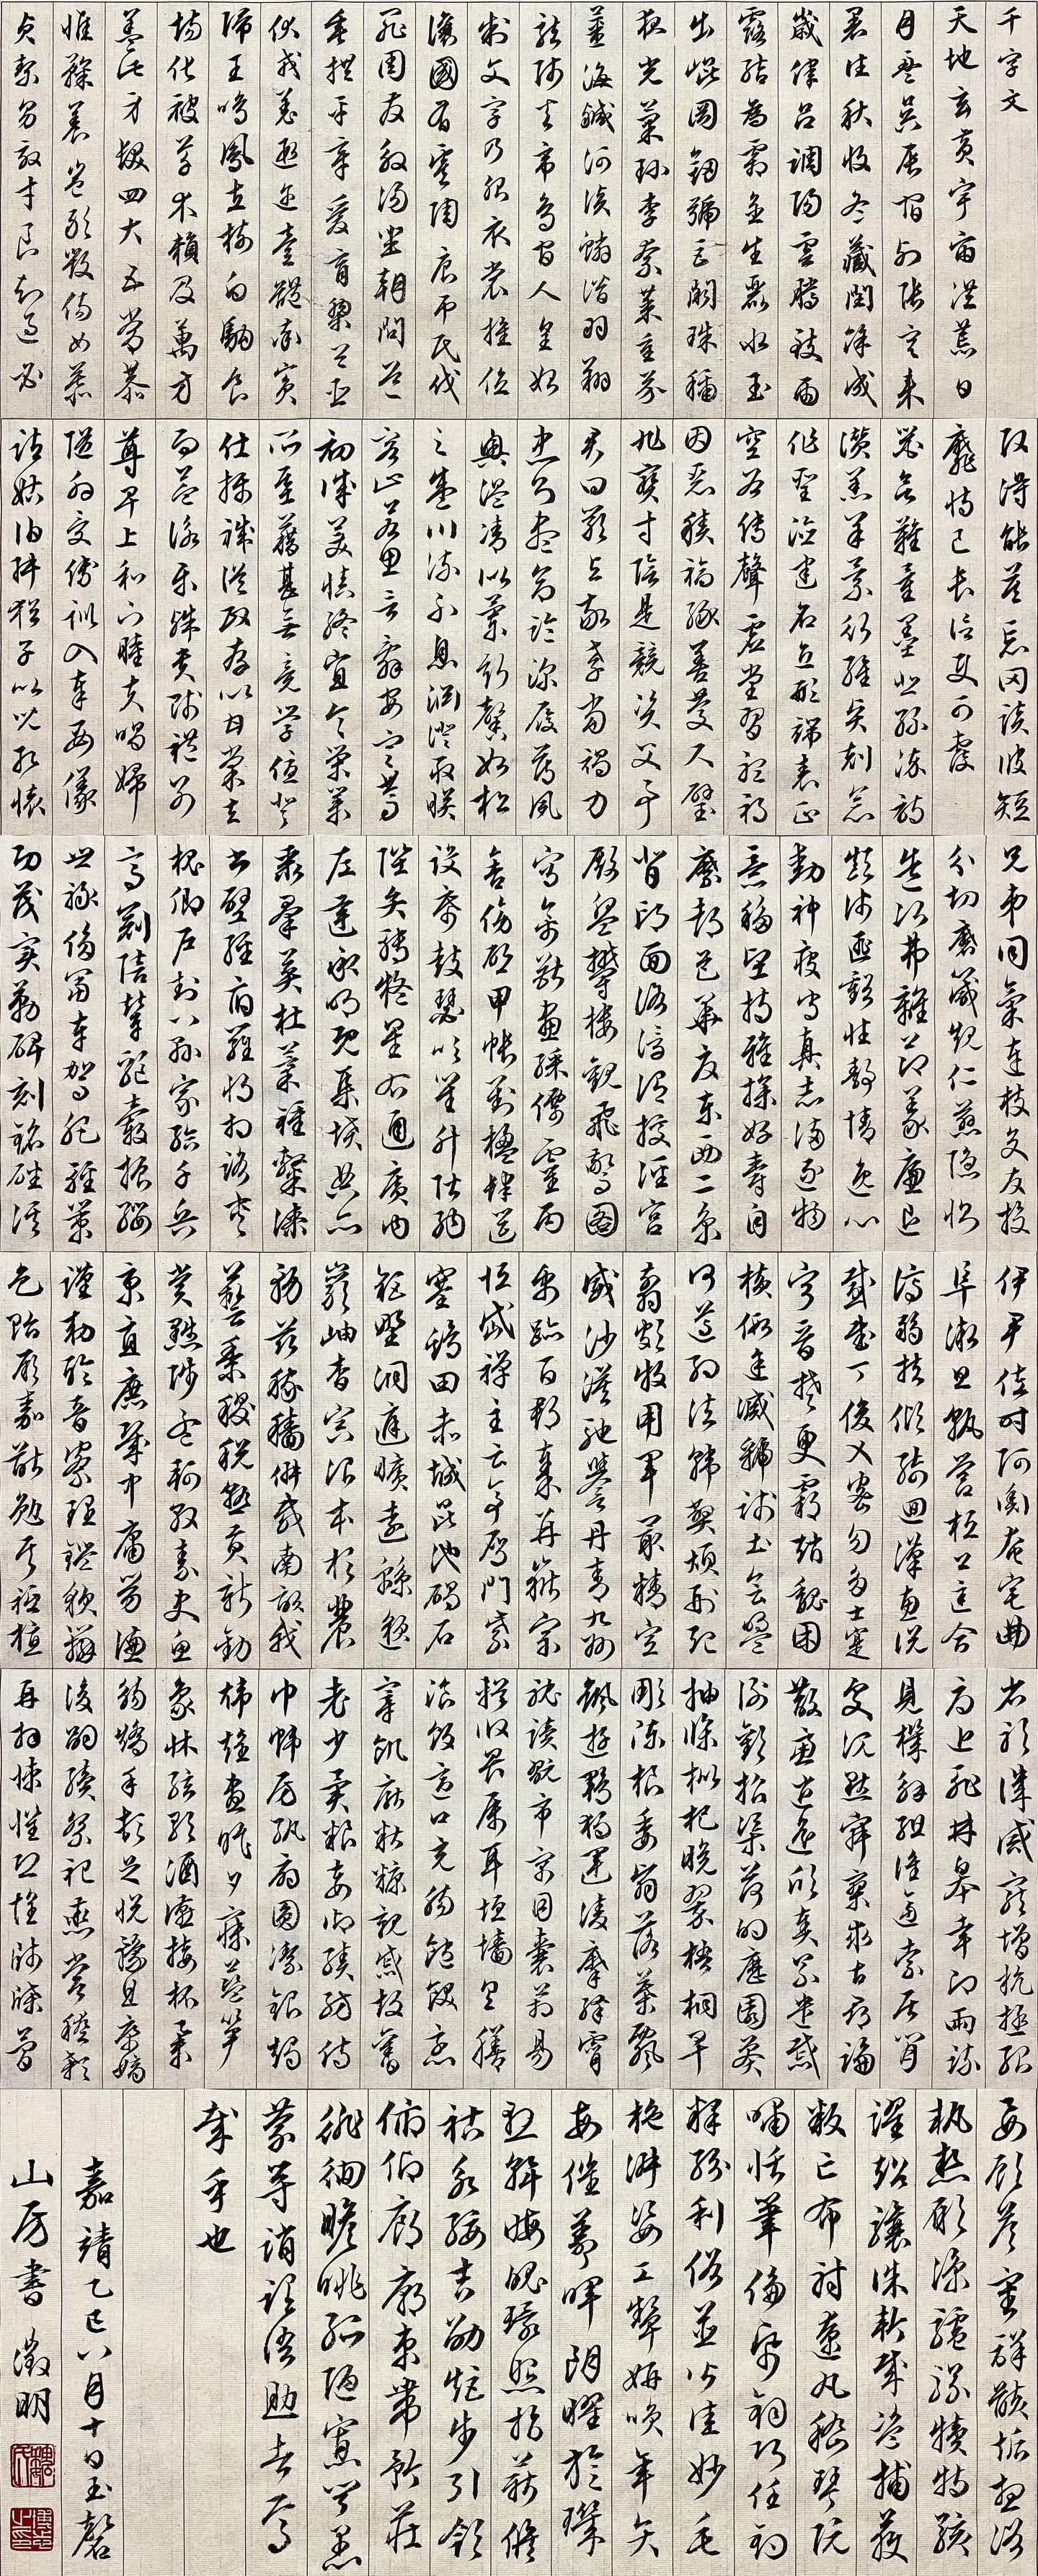 千字文
天地玄黄宇宙洪荒日
月盈昃辰宿列張寒来
暑往秋收冬藏閏餘成
歲律吕調陽雲騰致雨
露結為霜金生麗水玉
出崐岡劒號巨闕珠稱
夜光菓珍李柰菜重芥
薑海鹹河淡鱗潛羽翔
龍師火帝鳥官人皇始
制文字乃服衣裳推位
讓國有虞陶唐弔民伐
罪周發殷湯坐朝問道
垂拱平章愛育黎首臣
伏戎羌遐邇壹體率賓
歸王鳴鳳在樹白駒食
場化被草木賴及萬方
蓋此身髮四大五常恭
惟鞠養豈敢毁傷女慕
貞絜男效才良知過必
改得能莫忘罔談彼短
靡恃己長信使可覆
器欲難量墨悲絲染詩
讚羔羊景行維賢剋念
作聖德建名立形端表正
空谷傳聲虚堂習聽禍
因惡積福緣善慶尺璧
非寶寸陰是競資父事
君曰嚴與敬孝當竭力
忠則盡命臨深履薄夙
興温凊似蘭斯馨如松
之盛川流不息淵澄取暎
容止若思言辭安定篤
初誠美慎終宜令榮業
所基藉甚無竟學優登
仕攝職從政存以甘棠去
而益詠樂殊貴賤禮别
尊卑上和下睦夫唱婦
隨外受傅訓入奉母儀
諸姑伯叔猶子比兒孔懷
兄弟同氣連枝交友投
分切磨箴規仁慈隱惻
造次弗離節義廉退
顛沛匪虧性静情逸心
動神疲守真志滿逐物
意移堅持雅操好爵自
縻都邑華夏東西二京
背邙面洛浮渭據涇宮
殿盤鬱樓觀飛驚圖
寫禽獸畫綵僊靈丙
舍傍啟甲帳對楹肆筵
設席鼓瑟吹笙升階納
陛弁轉疑星右通廣内
左達承明既集墳典亦
聚羣英杜稾鍾隸漆
書壁經府羅將相路俠
槐卿户封八縣家給千兵
高冠陪輦驅轂振纓
世禄侈富車駕肥輕策
功茂實勒碑刻銘磻溪
伊尹佐時阿衡奄宅曲
阜微旦孰營桓公匡合
濟弱扶傾綺迴漢惠説
感武丁俊乂密勿多士寔
寧晉楚更霸趙魏困
横假途滅虢踐土會盟
何遵約法韓弊煩刑起
翦頗牧用軍最精宣
威沙漠馳譽丹青九州
禹跡百郡秦并嶽宗
恒岱禪主云亭雁門紫
塞雞田赤城昆池碣石
鉅野洞庭曠遠緜邈
巖岫杳冥治本於農
務兹稼穡俶載南畝我
藝黍稷税熟貢新勸
賞黜陟孟軻敦素史魚
秉直庶幾中庸勞謙
謹勑聆音察理鑑貌辯
色貽厥嘉猷勉其祗植
省躬譏誡寵增抗極殆
辱近恥林皋幸即兩疏
見機解組誰逼索居閒
處沉默寂寥求古尋論
散慮逍遥欣奏累遣慼
謝歡招渠荷的歷園莽
抽條枇杷晚翠梧桐早
彫陳根委翳落葉飄
颻遊鵾獨運淩摩絳霄
耽讀翫市寓目囊箱易
輶攸畏屬耳垣墻具膳
飡飯適口充腸飽飫烹
宰飢厭糟糠親戚故舊
老少異糧妾御績紡侍
巾帷房紈扇圓潔銀燭
煒煌晝眠夕寐藍笋
象牀絃歌酒讌接杯舉
觴矯手頓足悦豫且康嫡
後嗣續祭祀烝嘗稽顙
再拜悚懼恐惶牋牒簡
要顧答審詳骸垢想浴
執熱願涼驢騾犢特駭
躍超驤誅斬賊盗捕獲
叛亡布射遼丸嵇琴阮
嘯恬筆倫紙鈞巧任釣
釋紛利俗並皆佳妙毛
施淑姿工顰妍笑年矢
每催羲暉朗曜旋璣
懸斡晦魄環照指薪修
祜永綏吉劭矩步引領
俯仰廊廟束帶矜莊
徘徊瞻眺孤陋寡聞愚
蒙等誚謂語助者焉
哉乎也
嘉靖乙巳八月十日玉磬
山房書 徵明